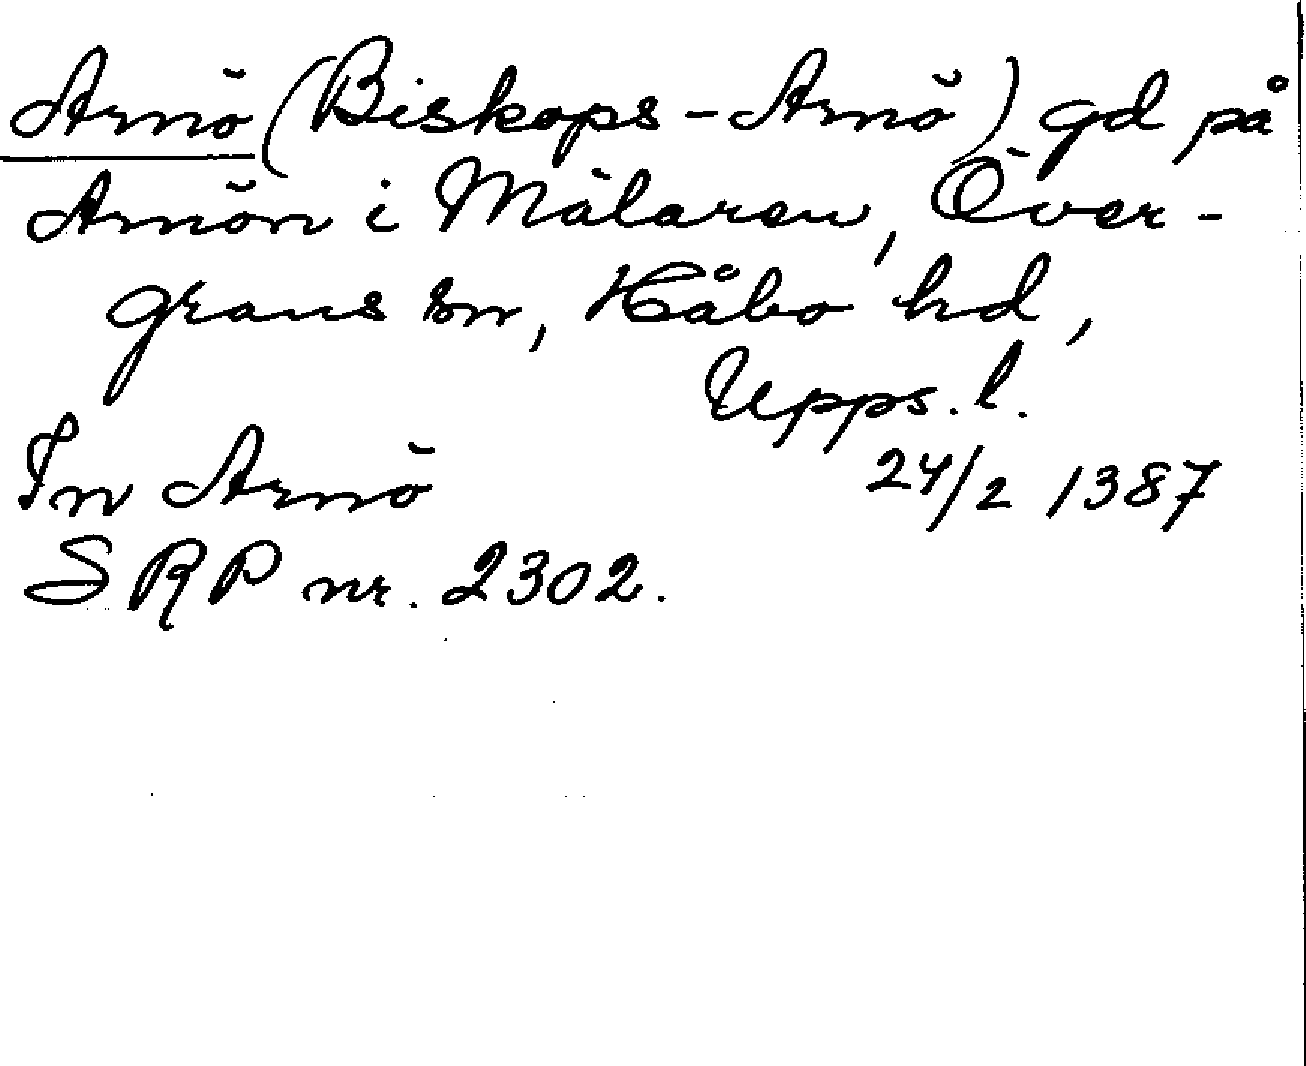 Arnö (Biskops-Arnö) gd på
Arnön i Mälaren, Över-
grans sn, Håbo hd,
Upps. l.
In Arnö 24/2 1387
SRP nr. 2302.